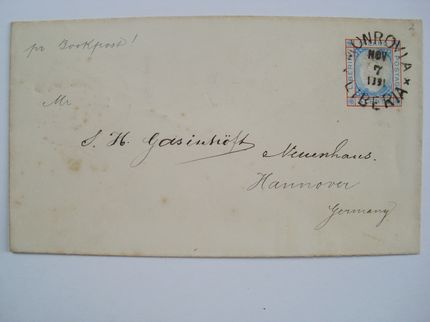 pr Bookpost!
MONROVIA
NOV
7
1891
LIBERIA
Mr
S. H. Gasinhöft
Neuenhaus.
Hannover
Germany.